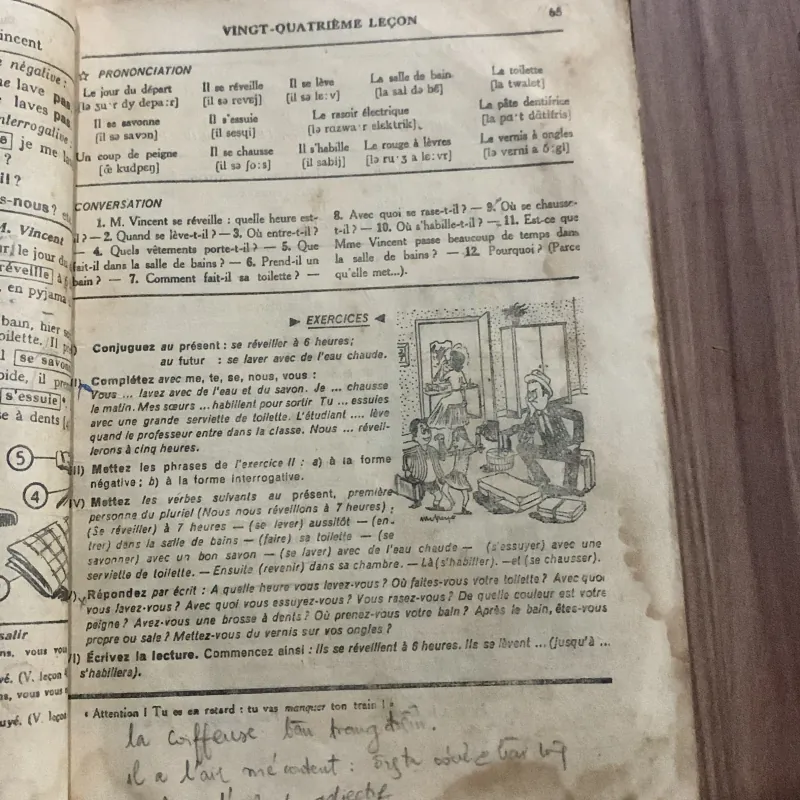 VINGT-QUATRIÈME LEÇON
65
☆ PRONONCIATION
Le jour du départ Il se réveille Il se lève La salle de bain La toilette
[lə ʒu·r dy depa:r] [il sə revɛj] [il sə lɛ:v] [la sal də bɛ̃] [la twalɛt]
Il se savonne Il s'essuie Le rasoir électrique La pâte dentifrice
[il sə savɔn] [il sesɥi] [lə razwa·r elɛktrik] [la pɑ·t dɑ̃tifris]
Un coup de peigne Il se chausse Il s'habille Le rouge à lèvres Le vernis à ongles
[œ̃ kudpɛɲ] [il sə ʃo:s] [il sabij] [lə ru·ʒ a lɛ:vr] [lə vɛrni a ɔ̃:gl]
CONVERSATION
1. M. Vincent se réveille : quelle heure est-
il ? — 2. Quand se lève-t-il ? — 3. Où entre-t-il ?
— 4. Quels vêtements porte-t-il ? — 5. Que
fait-il dans la salle de bains ? — 6. Prend-il un
bain ? — 7. Comment fait-il sa toilette ? —
8. Avec quoi se rase-t-il ? — 9. Où se chausse-
t-il ? — 10. Où s'habille-t-il ? — 11. Est-ce que
Mme Vincent passe beaucoup de temps dans
la salle de bains ? — 12. Pourquoi ? (Parce
qu'elle met...).
► EXERCICES ◄
Conjuguez au présent : se réveiller à 6 heures;
au futur : se laver avec de l'eau chaude.
II) Complétez avec me, te, se, nous, vous :
Vous ... lavez avec de l'eau et du savon. Je ... chausse
le matin. Mes sœurs ... habillent pour sortir Tu ... essuies
avec une grande serviette de toilette. L'étudiant .... lève
quand le professeur entre dans la classe. Nous ... réveil-
lerons à cinq heures.
III) Mettez les phrases de l'exercice II : a) à la forme
négative ; b) à la forme interrogative.
IV) Mettez les verbes suivants au présent, première
personne du pluriel (Nous nous réveillons à 7 heures) :
(Se réveiller) à 7 heures — (se lever) aussitôt — (en-
trer) dans la salle de bains — (faire) sa toilette — (se
savonner) avec un bon savon — (se laver) avec de l'eau chaude — (s'essuyer) avec une
serviette de toilette. — Ensuite (revenir) dans sa chambre. — Là (s'habiller). — et (se chausser).
Répondez par écrit : A quelle heure vous levez-vous ? Où faites-vous votre toilette ? Avec quoi
vous lavez-vous ? Avec quoi vous essuyez-vous ? Vous rasez-vous ? De quelle couleur est votre
peigne ? Avez-vous une brosse à dents ? Où prenez-vous votre bain ? Après le bain, êtes-vous
propre ou sale ? Mettez-vous du vernis sur vos ongles ?
Écrivez la lecture. Commencez ainsi : Ils se réveillent à 6 heures. Ils se lèvent ... (jusqu'à ...
s'habillera).
« Attention ! Tu es en retard : tu vas manquer ton train ! »
la coiffeuse bàn trang điểm.
il a l'air mécontent :
adjectif
incent
négative :
lave pas
laves pas
interrogative :
je me la
?
il ?
s-nous ?
M. Vincent
le jour du
réveille à
en pyjama
bain, hier
toilette. Il
se savon
il
s'essuie
à dents
5
4
salir
ns, vous vou
vé. (V. leçon
, vous vous
uyé. (V. leçon